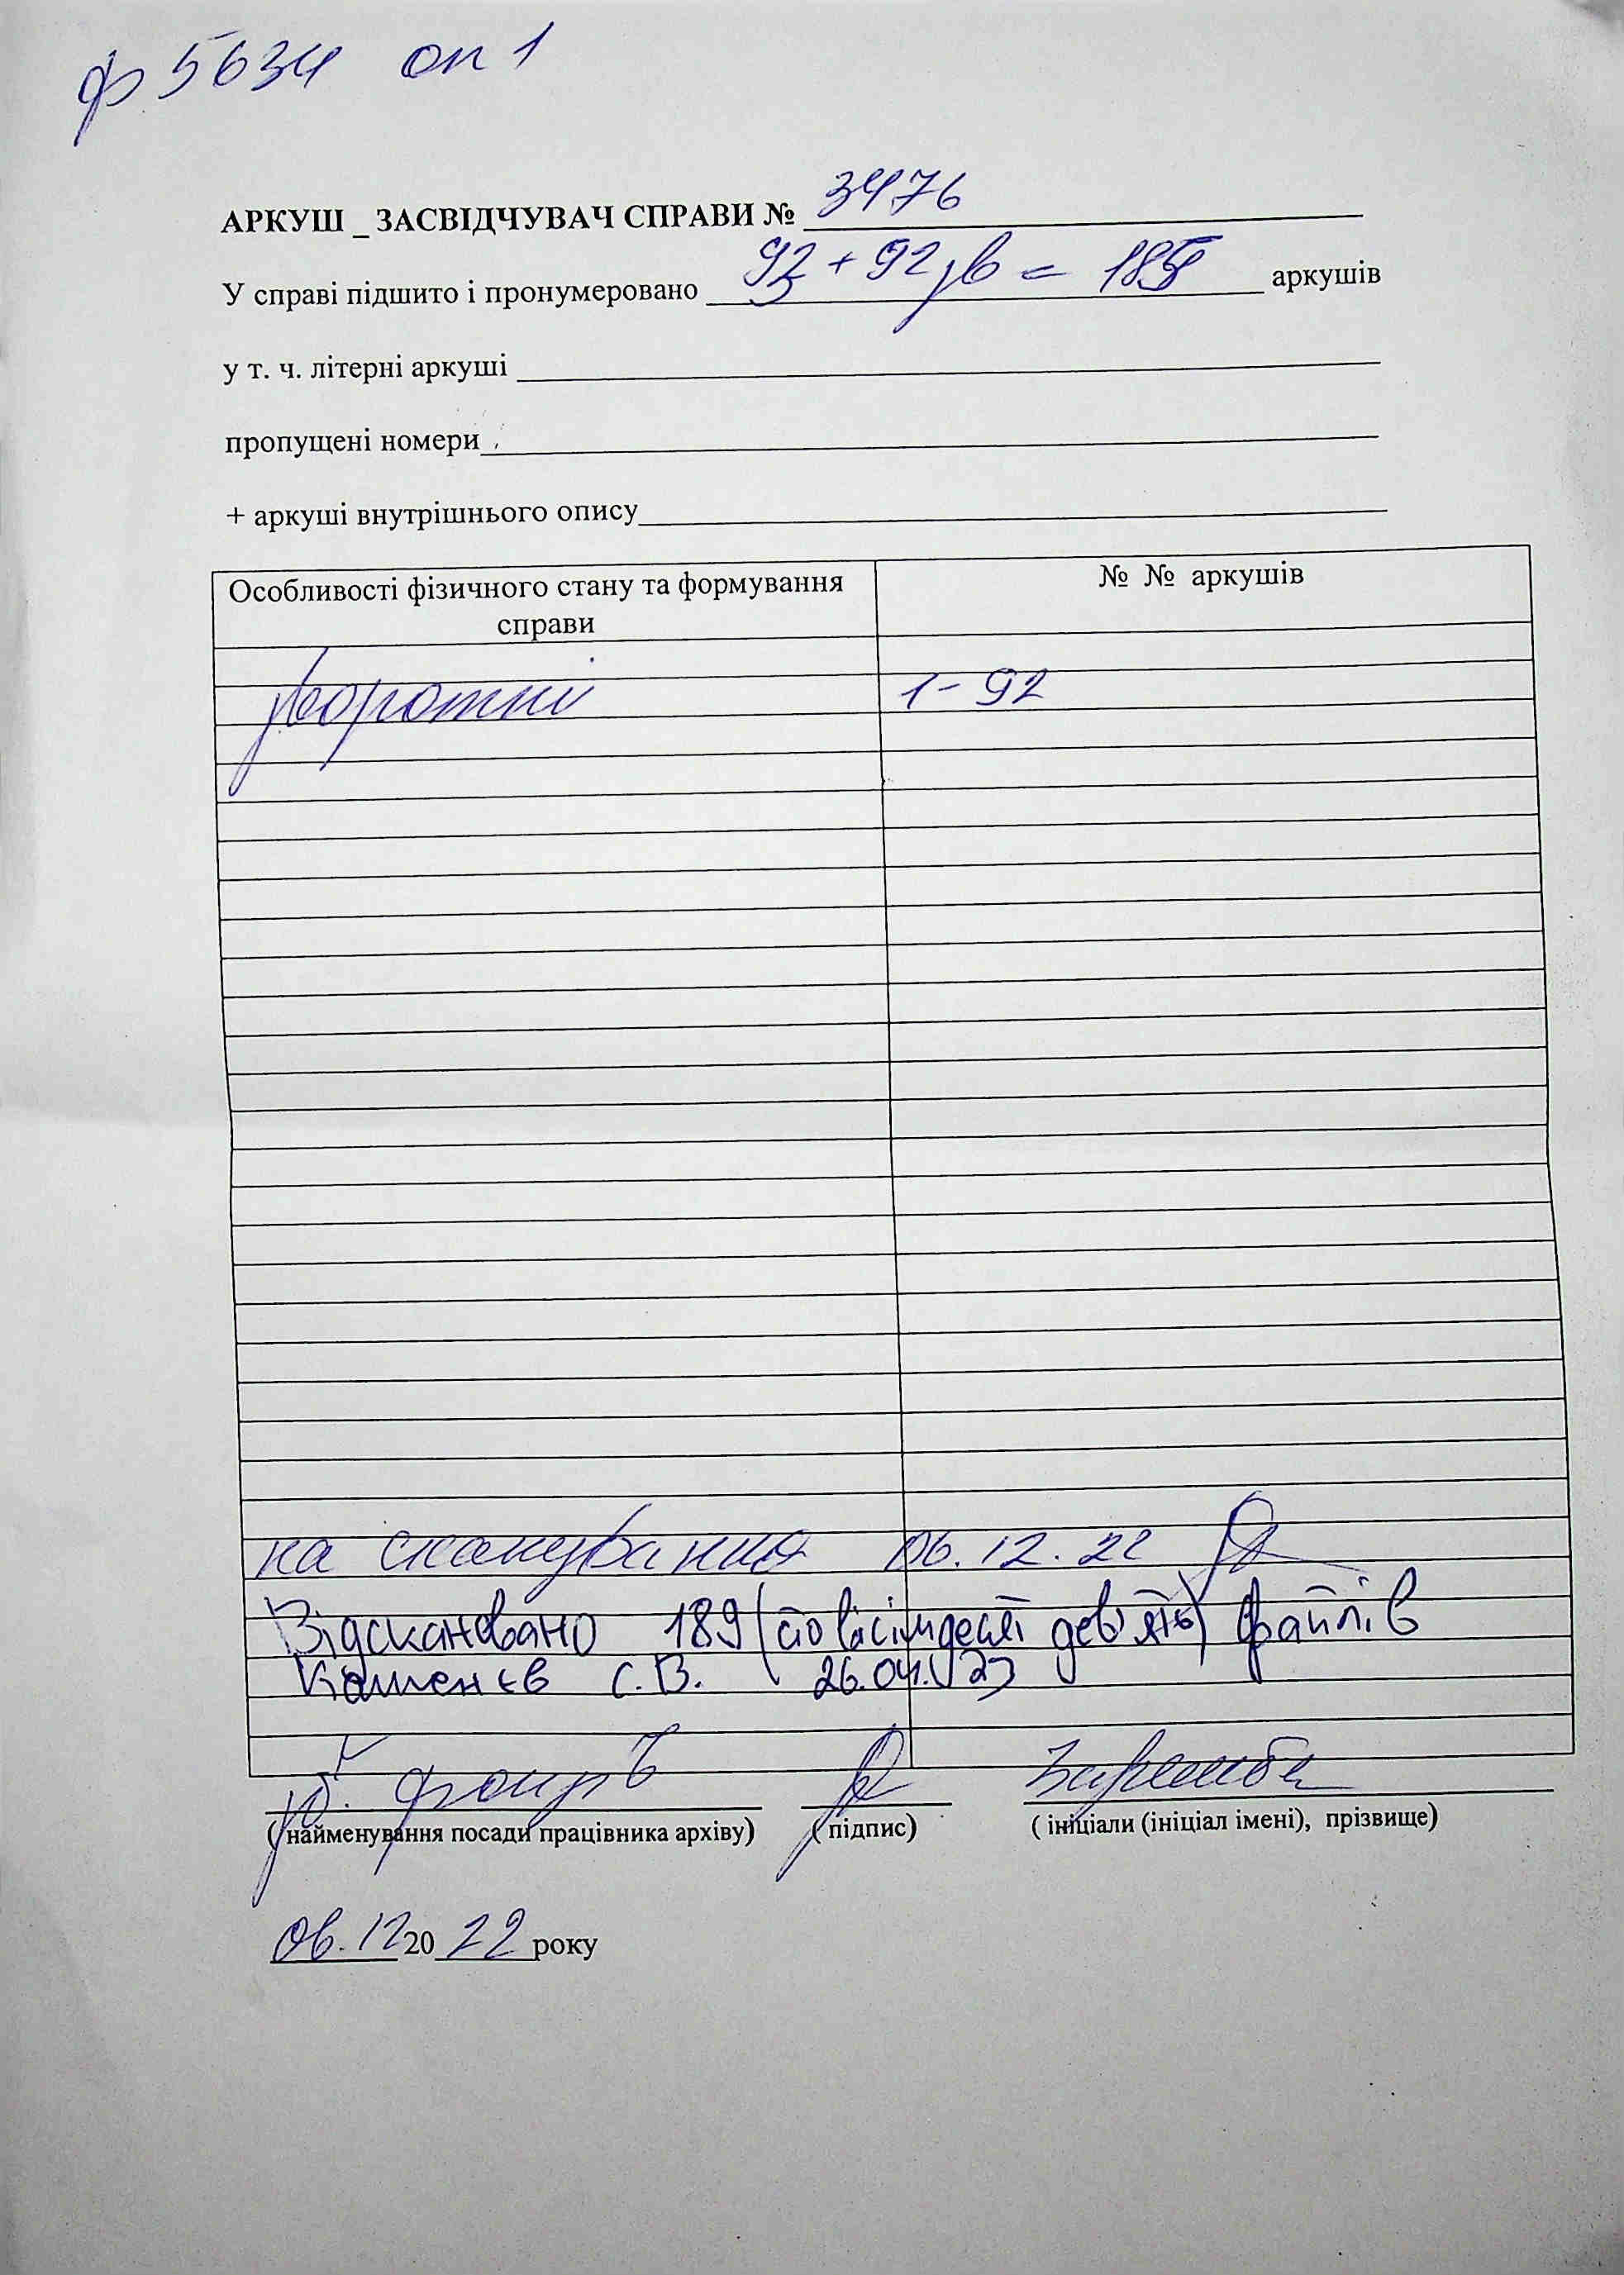 ф 5634 оп 1
АРКУШ _ ЗАСВІДЧУВАЧ СПРАВИ № 3476
У справі підшито і пронумеровано 93 + 92 зв = 185 аркушів
у т. ч. літерні аркуші
пропущені номери
+ аркуші внутрішнього опису
Особливості фізичного стану та формування справи № № аркушів
зворотні 1-92
на сканування 06.12.22
Відскановано 189 (сто вісімдесят дев'ять) файлів
Каменєв С.В. 26.04.23
фондів
( найменування посади працівника архіву) ( підпис) ( ініціали (ініціал імені), прізвище)
06.12 20 22 року